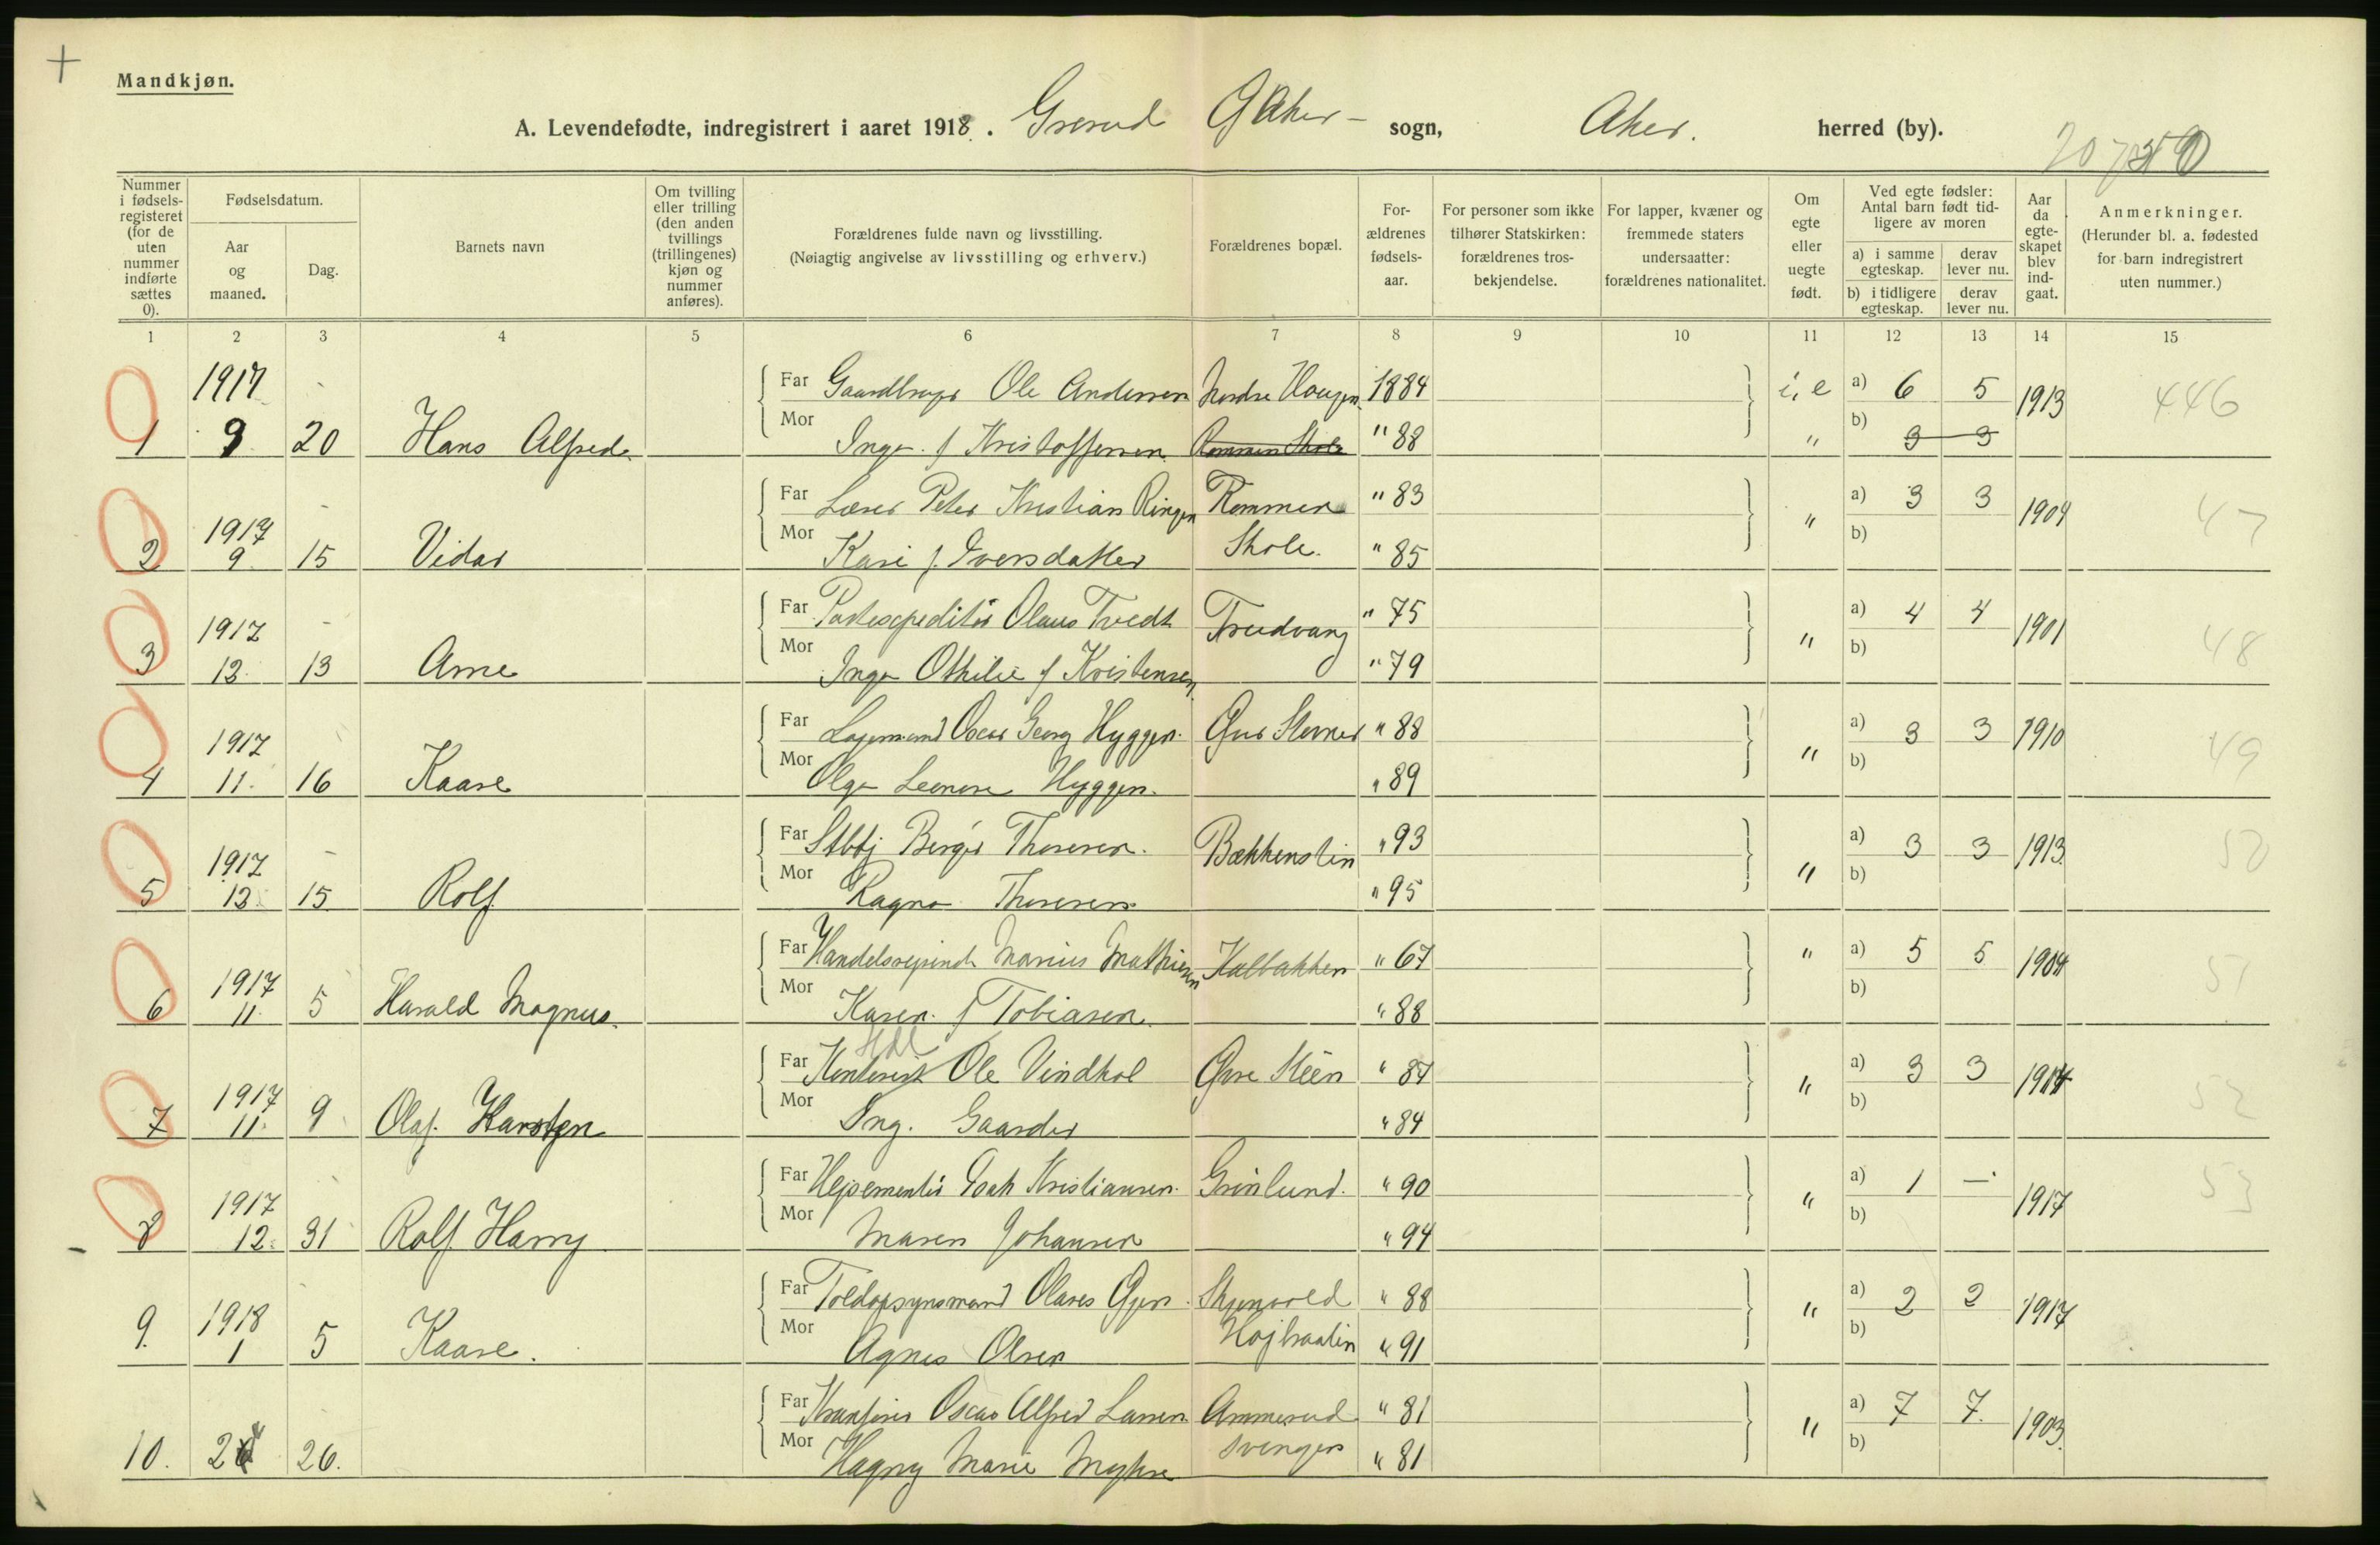 Mandkjøn.
A. Levendefødte, indregistrert i aaret 1918. Grorud Ø Aker - sogn, Aker. herred (by).
Nummer i fødselsregisteret (for de uten nummer indførte sættes 0).
Fødselsdatum.
Aar og maaned.
Dag.
Barnets navn
Om tvilling eller trilling (den anden tvillings (trillingenes) kjøn og nummer anføres).
Forældrenes fulde navn og livsstilling.
(Nøiagtig angivelse av livsstilling og erhverv.)
Forældrenes bopæl.
Forældrenes fødselsaar.
For personer som ikke tilhører Statskirken: forældrenes trosbekjendelse.
For lapper, kvæner og fremmede staters undersaatter: forældrenes nationalitet.
Om egte eller uegte født.
Ved egte fødsler: Antal barn født tidligere av moren
a) i samme egteskap. derav lever nu.
b) i tidligere egteskap. derav lever nu.
Aar da egteskapet blev indgaat.
Anmerkninger.
(Herunder bl. a. fødested for barn indregistrert uten nummer.)
1 2 3 4 5 6 7 8 9 10 11 12 13 14 15
1917 Far Gaardbruger Ole Andersen Nordre Haugen 1884 i, e a) 6 5 1913 446
1 9 20 Hans Alfred Mor Inga f Kristoffersen Rommen Skole " 88 " b) 3 3
1917 Far Lærer Peter Kristian Ringen Rommen " 83 a) 3 3 1909 47
2 9 15 Vidar Mor Kari f. Iversdatter Skole. " 85 " b)
1917 Far Postexpeditør Olaus Tvedt Trudvang " 75 a) 4 4 1901 48
3 12 13 Arne Mor Inga Othilie f Kristensen " 79 " b)
1917 Far Lagermand Oscar Georg Hyggen. " 88 a) 3 3 1910 49
4 11. 16 Kaare Mor Olga Leonore Hyggen. " 89 " b)
1917 Far Stbtj Birger Thoresen. Bækkenstin " 93 a) 3 3 1913 50
5 12 15 Rolf Mor Ragna Thoresen " 95 " b)
1917 Far Marius Mathiesen Kalbakken " 67 " a) 5 5 1904 51
6 11 5 Harald Magnus. Mor Karen f Tobiasen " 88 b)
Hdl
1917 Far Kontorist Ole Vindhol Øvre Steen " 87 a) 3 3 52
7 11. 9 Olaf Karsten Mor Ing. Gaarder " 84 " b)
1917 Far Isak Kristiansen. Grønlund. " 90 a) 1 - 1917 53
8 12. 31 Rolf Harry Mor Maren Johansen " 94 " b)
1918 Far Toldopsynsmand Olaves Gjen. " 88 a) 2 2 1917
9. 1 5 Kaare. Mor Agnes Olsen Højbraaten " 91 " b)
Far Kranfører Oscar Alfred Larsen Ammerud " 81 a) 7 7. 1903
10. 26. Mor Hagny Marie Myhre svingen " 81 " b)